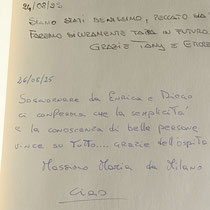 24/08/25
SIAMO STATI BENISSIMO, PECCATO
FAREMO SICURAMENTE TAPPA IN FUTURO
GRAZIE TANY E ETTORE
26/08/25
Soggiornare da Enrica e Diego
ci conferma che la semplicità
e la conoscenza di belle persone
vince su tutto.... grazie dell'ospita
Massimo Maria da Milano
Ciao